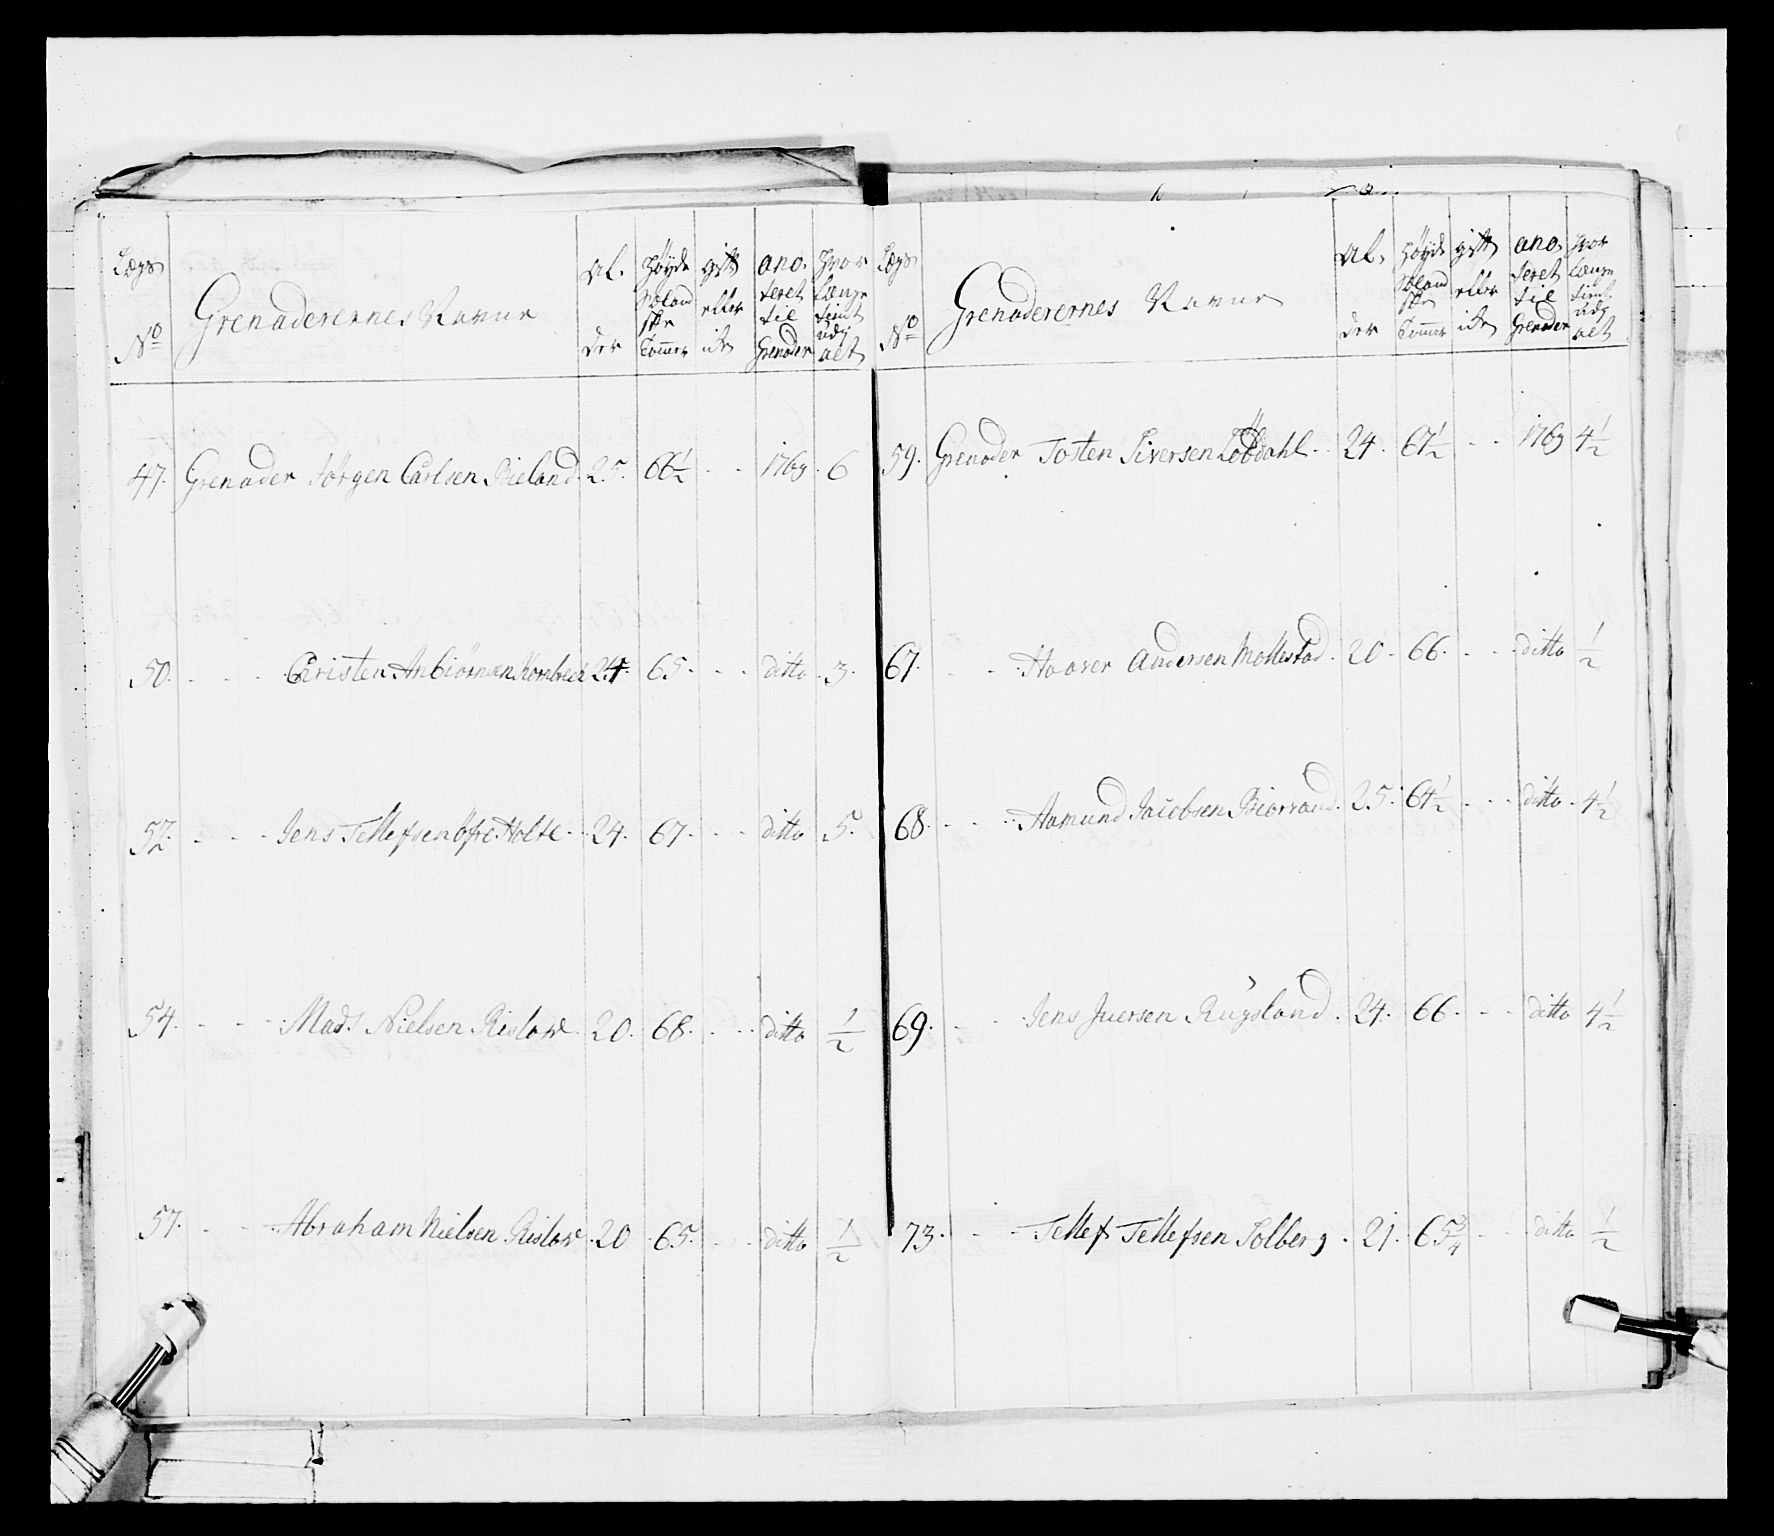 Lægs No
Grenaderernes Navne
Al. der
Høyde Seland ske Tommer
gift eller ike
ano. teret til Grenader
Hvor Længe tient udj alt
47. Grenader Jørgen Carlsen Bieland. 25. 66 1/2 - - 1769. 6
50. - - - Christen Anbiørnsen 24. 65. - - ditto. 3.
52. - - - Jens Tellefsen Øfre Holte. 24. 67. - - ditto 5.
54. - - - Mads Nielsen Rislaae 20. 68. - - ditto 1/2
57. - - - Abraham Nielsen Rislaae 20 65. - - ditto 1/2
Lægs No
Grenaderernes Navne
Al. der
Høyde Seland ske Tommer
gift eller ike
ano. teret til Grenader
Hvor Længe tient udj alt
59. Grenader Tosten Siversen Løbdahl. 24. 67 1/2 - - 1769 4 1/2
67. - - Haaver Andersen Mollestad. 20. 66. - - ditto 1/2
68. - - Aamund Jacobsen Biorraad. 25. 64 1/2 - - ditto. 4 1/2
69. - - Jens Juersen Rugsland. 24. 66. - - ditto 4 1/2
73. - - Tellef Tellefsen Solberg. 21. 65 3/4 - - ditto 1/2